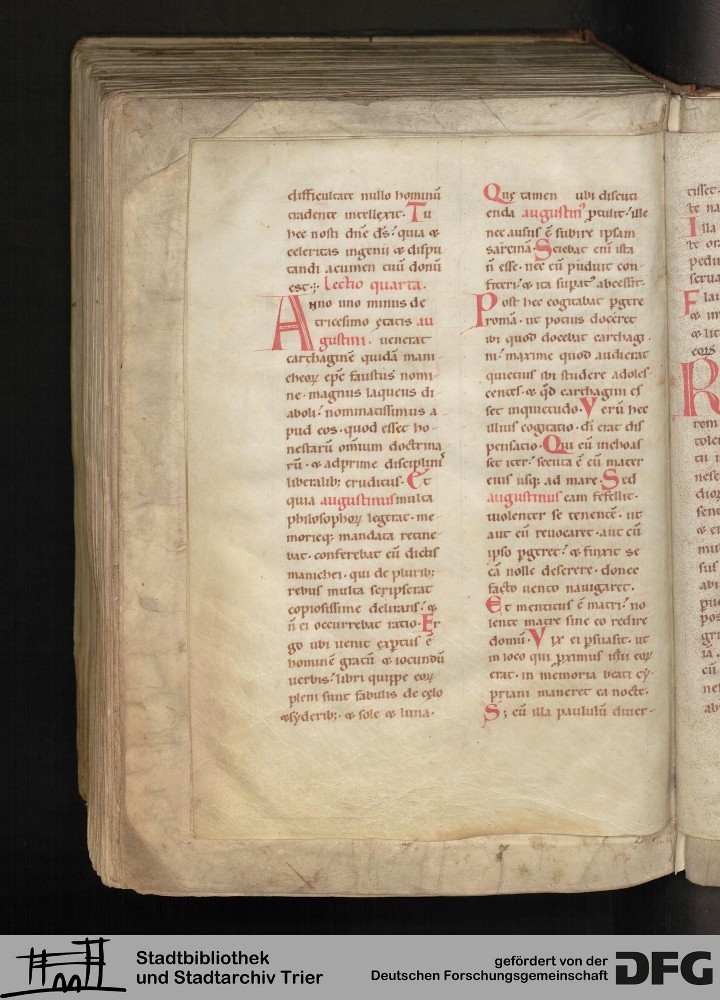 difficultate nullo hominū
tradente intellexit · Tu
hec nosti dn̄e ds̄ ; quia &
celeritas ingenii & dispu
tandi acumen tuū donū
est ·;· Lectio quarta ·
ANno uno minus de
tricesimo ętatis au
gustini · uenerat
carthaginē quidā mani
cheoꝝ ep̄c faustus nomi
ne · magnus laqueus di
aboli ; nominatissimus a
pud eos · quod esset ho
nestarū om̄ium doctrina
rū · & adprime disciplinis
liberalib; eruditus · Et
quia augustinus multa
philosophoꝝ legerat · me
morieq; mandata retine
bat · conferebat eū dictis
manichei · qui de plurib;
rebus multa scripserat
copiosissime delirans ; &
n̄ ei occurrebat ratio · Er
go ubi uenit exꝑtus ē
hominē gratū & iocundū
uerbis ; libri quippe eoꝝ
pleni sunt fabulis de cęlo
& syderib; · & sole & luna ·
Quę tamen ubi discuti
enda augustin᷒ ꝓtulit ; ille
nec ausus ē subire ipsam
sarcinā · Sciebat eni ista
n̄ esse · nec eū puduit con
fiteri ; & ita supat᷒ abcessit ·
Post hec cogitabat ꝑgere
romā · ut potius doceret
ibi quod docebat carthagi
ni ; maxime quod audierat
quietius ibi studere adoles
centes · & qd̄ carthagini es
set inquietudo · Verū hec
illius cogitatio · di erat dis
pensatio · Qui cū inchoas
set iter ; secuta ē eū mater
eius usq; ad mare · Sed
augustinus eam fefellit ·
uiolenter se tenentē · ut
aut eū reuocaret · aut cū
ipso ꝑgeret ; & finxit se
eā nolle deserere · donec
facto uento nauigaret ·
Et mentitus ē matri ; no
lente matre sine eo redire
domū · Vix ei ꝑsuasit · ut
in loco qui ꝓximus isti eoꝝ
erat · in memoria beati cy
priani maneret ea nocte ·
S; cū illa paululū diuer
Stadtbibliothek
und Stadtarchiv Trier
gefördert von der
Deutschen Forschungsgemeinschaft
DFG